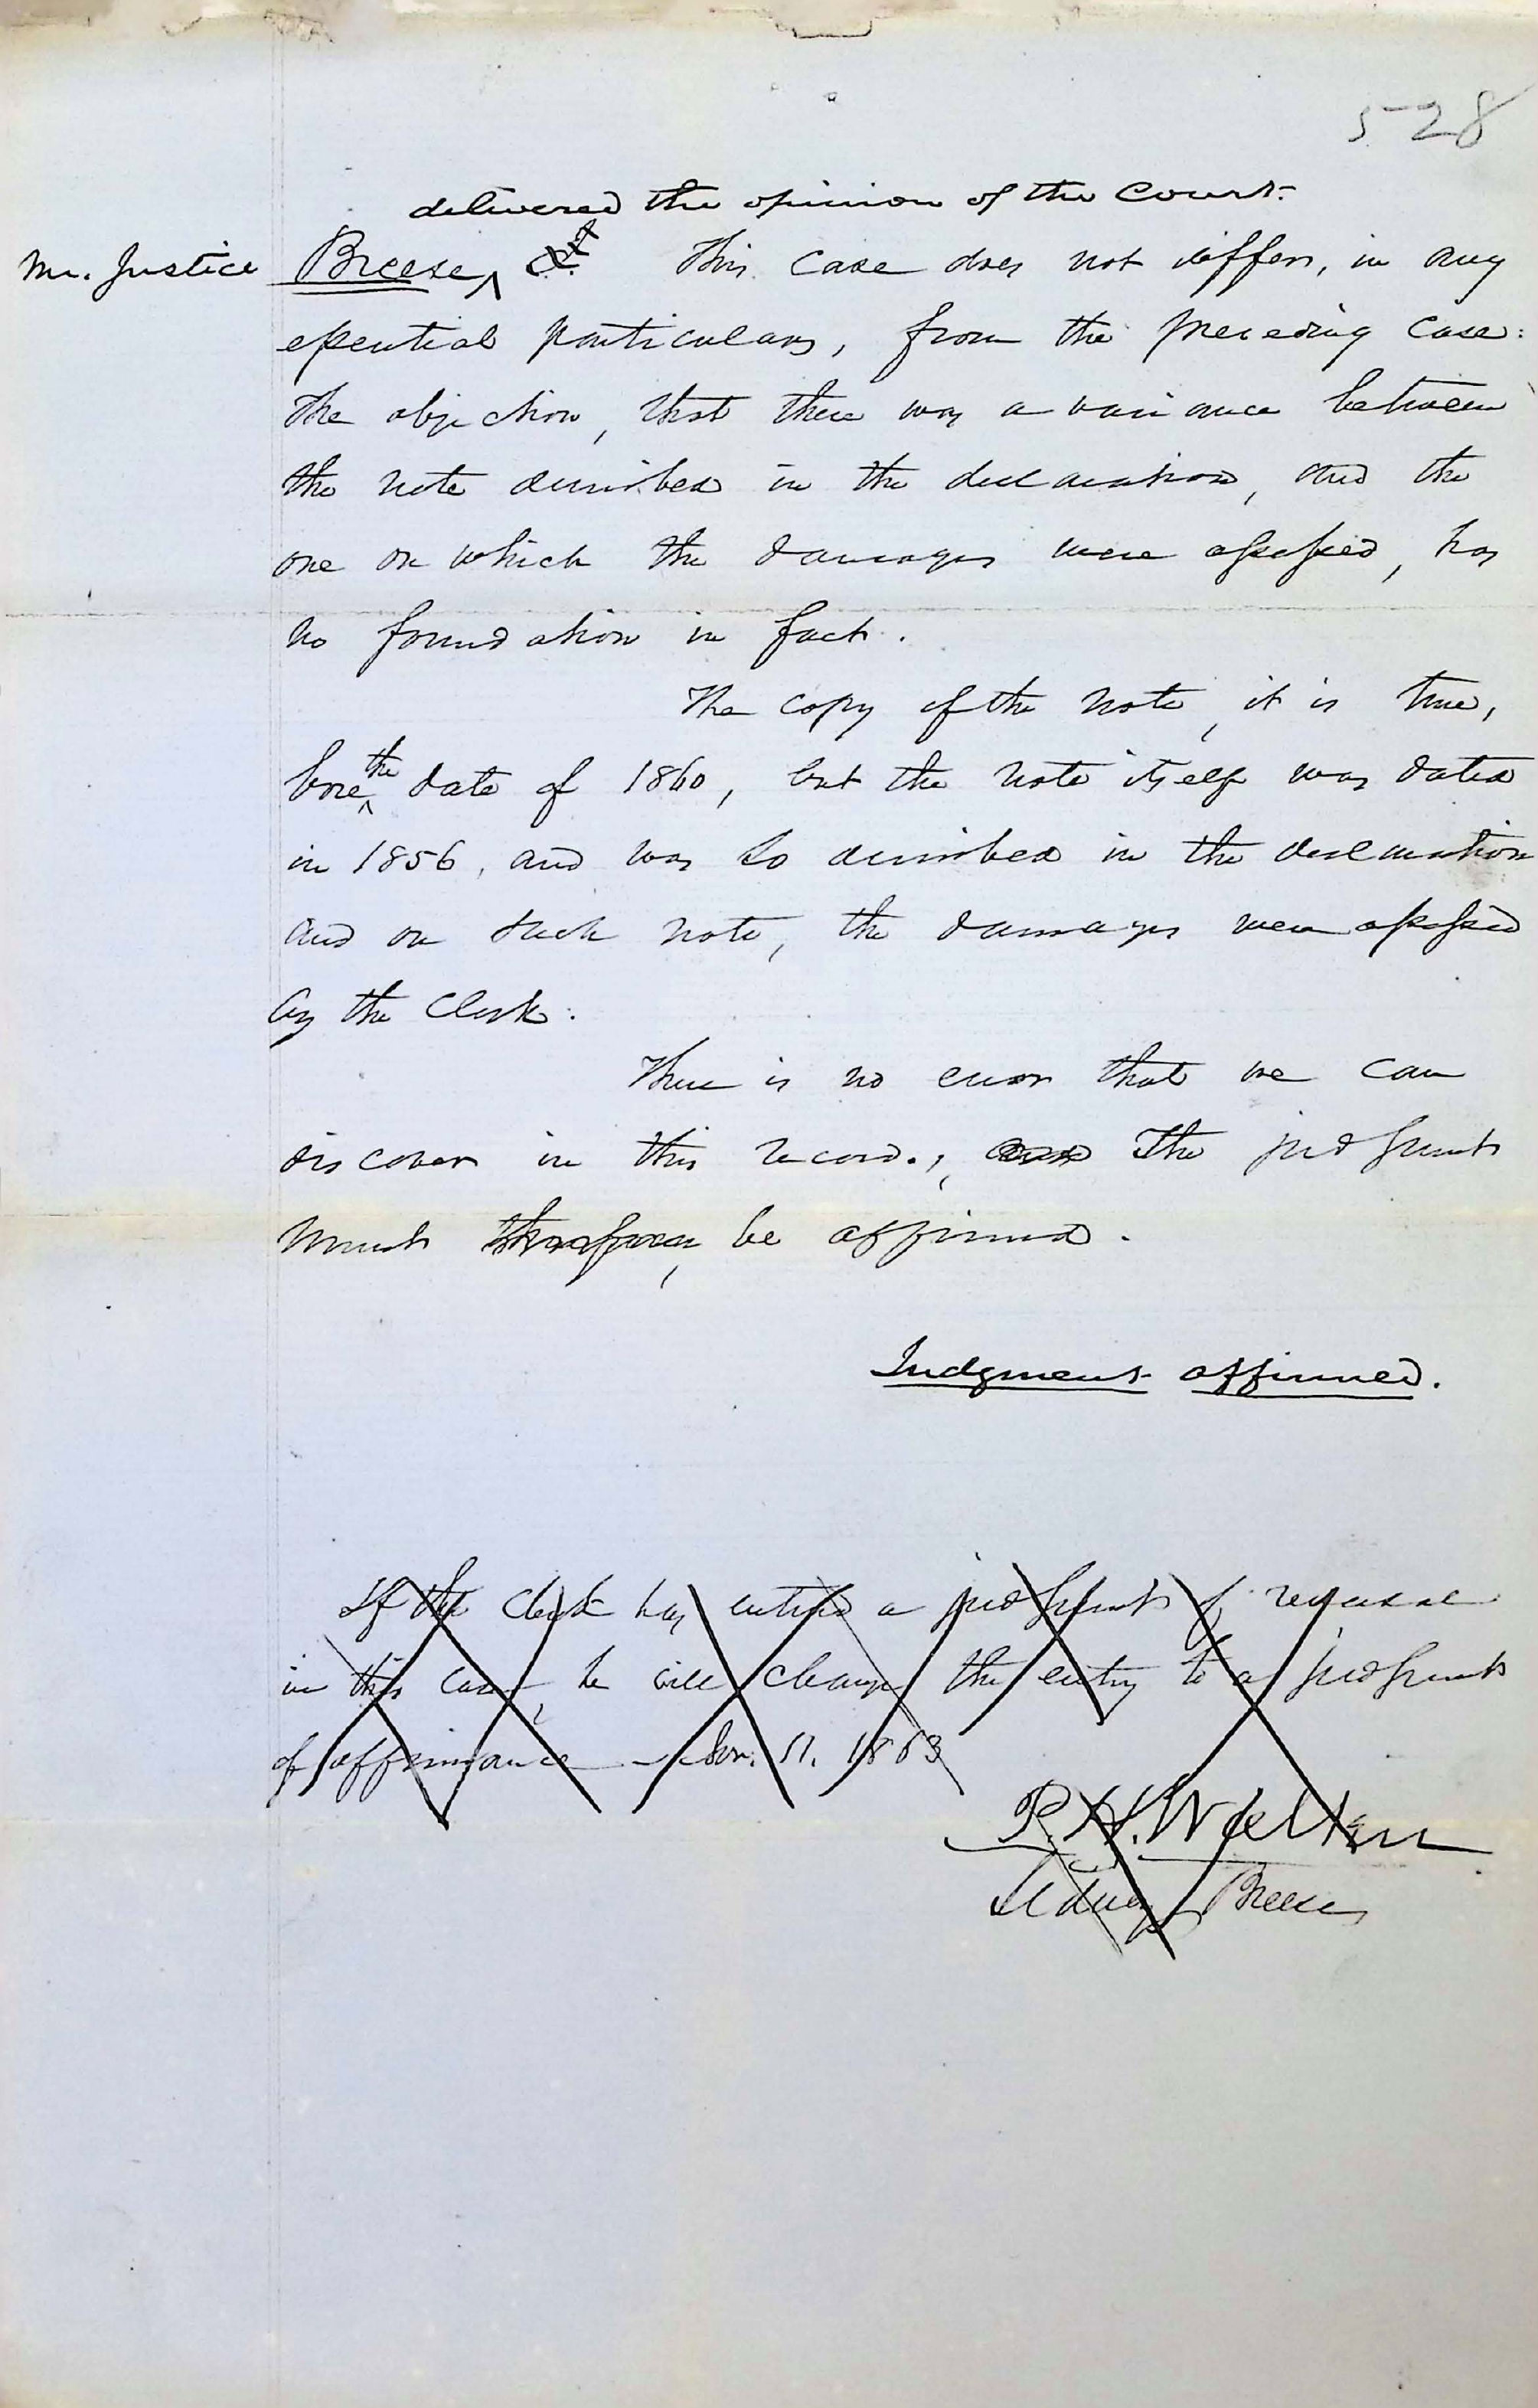 528
delivered the opinion of the Court.
Mr. Justice Breese, This case does not differ, in any
essential particulars, from the preceding case.
The objection, that there was a variance between
the note described in the declaration, and the
one on which the damages were assessed, has
no foundation in fact.
The copy of the note, it is true,
bore the date of 1860, but the note itself was dated
in 1856, and was so described in the declaration
and on such note, the damages were assessed
by the Clerk.
There is no error that we can
discover in this record, and The judgment
must therefore, be affirmed.
Judgment affirmed.
If the clerk has entered a judgment of reversal
in this case, he will change the entry to a judgment
of affirmance - 11. 1863
P. H. Walker
Sidney Breese